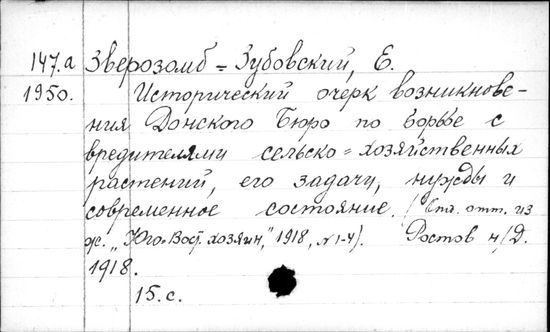 147.а Зверозомб-Зубовский, Е.
1950. Исторический очерк возникнове-
ния Донского Бюро по борьбе с
вредителями сельско-хозяйственных
растений, его задачи, нужды и
современное состояние. (Отд. отт. из
ж. „Юго-Вост. хозяин," 1918, №1-4). Ростов н/Д.
1918.
15. с.